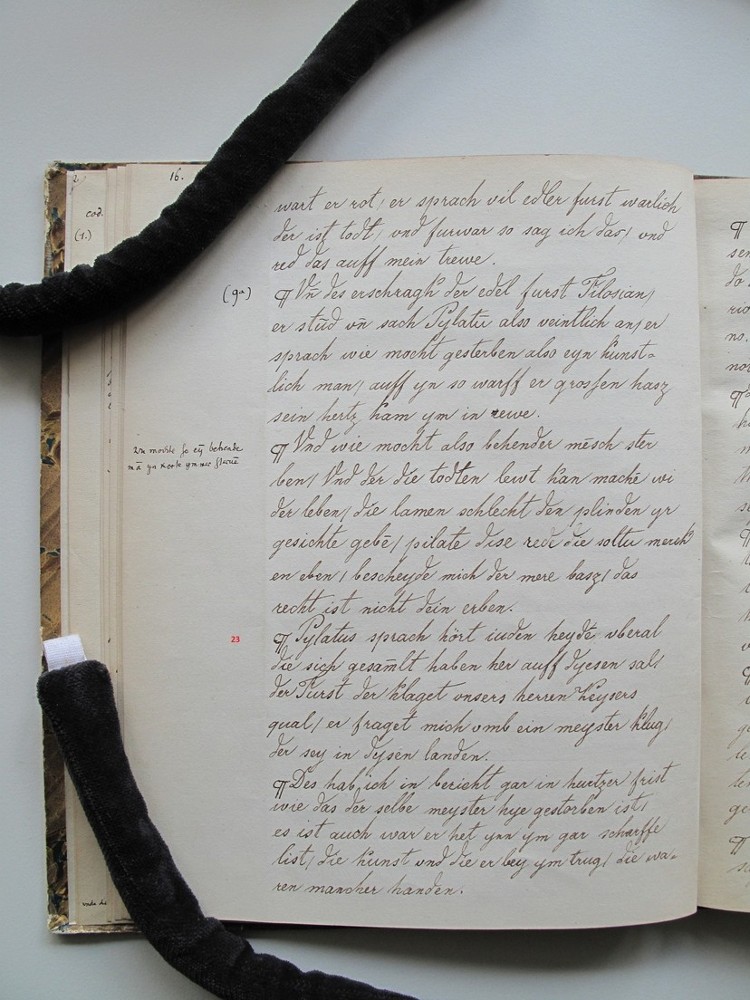 16.
cod.
(1.)
wart er rot, er sprach vil edler furst warlich
der ist todt, vnd furwar so sag ich das, vnd
red das auff mein trewe.
(9a)
¶ Vn̄ des erschragk der edel furst Tilosian,
er stūd vn̄ sach Pylatū also veintlich an, er
sprach wie mocht gesterben also eyn kunst=
lich man, auff yn so warff er grossen hasz
sein hertz kam ym in rewe.
¶ Vnd wie mocht also behender mēsch ster
ben, Vnd der die todten lewt kan machē wi
der leben, die lamen schlecht den plinden yr
gesichte gebē, pilate dise rede die soltu merck
en eben, bescheyde mich der mere basz, das
recht ist nicht dein erben.
23
¶ Pylatus sprach hört iuden heydē vberal
die sich gesam̄lt haben her auff dyesen sal
der Furst der klaget vnsers herren Keysers
qual, er fraget mich omb ein meyster klug,
der sey in dysen landen.
¶ Des hab ich in bericht gar in kurtzer frist
wie das der selbe meyster hye gestorben ist,
es ist auch war er het ynn ym gar scharffe
list, die kunst vnd die er bey ym trug, die wa=
ren mancher handen.